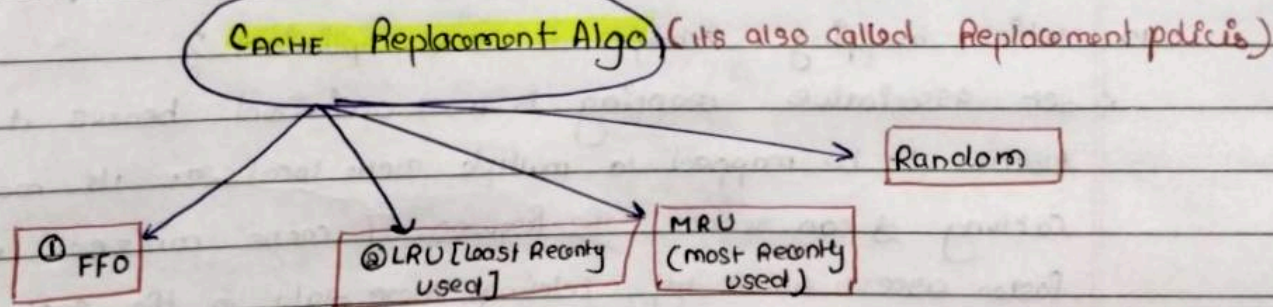 CACHE Replacemont Algo (its also called Replacemont policis)
Random
① FFO
② LRU [Loast Reconty
used]
MRU
(most Reconty
used)